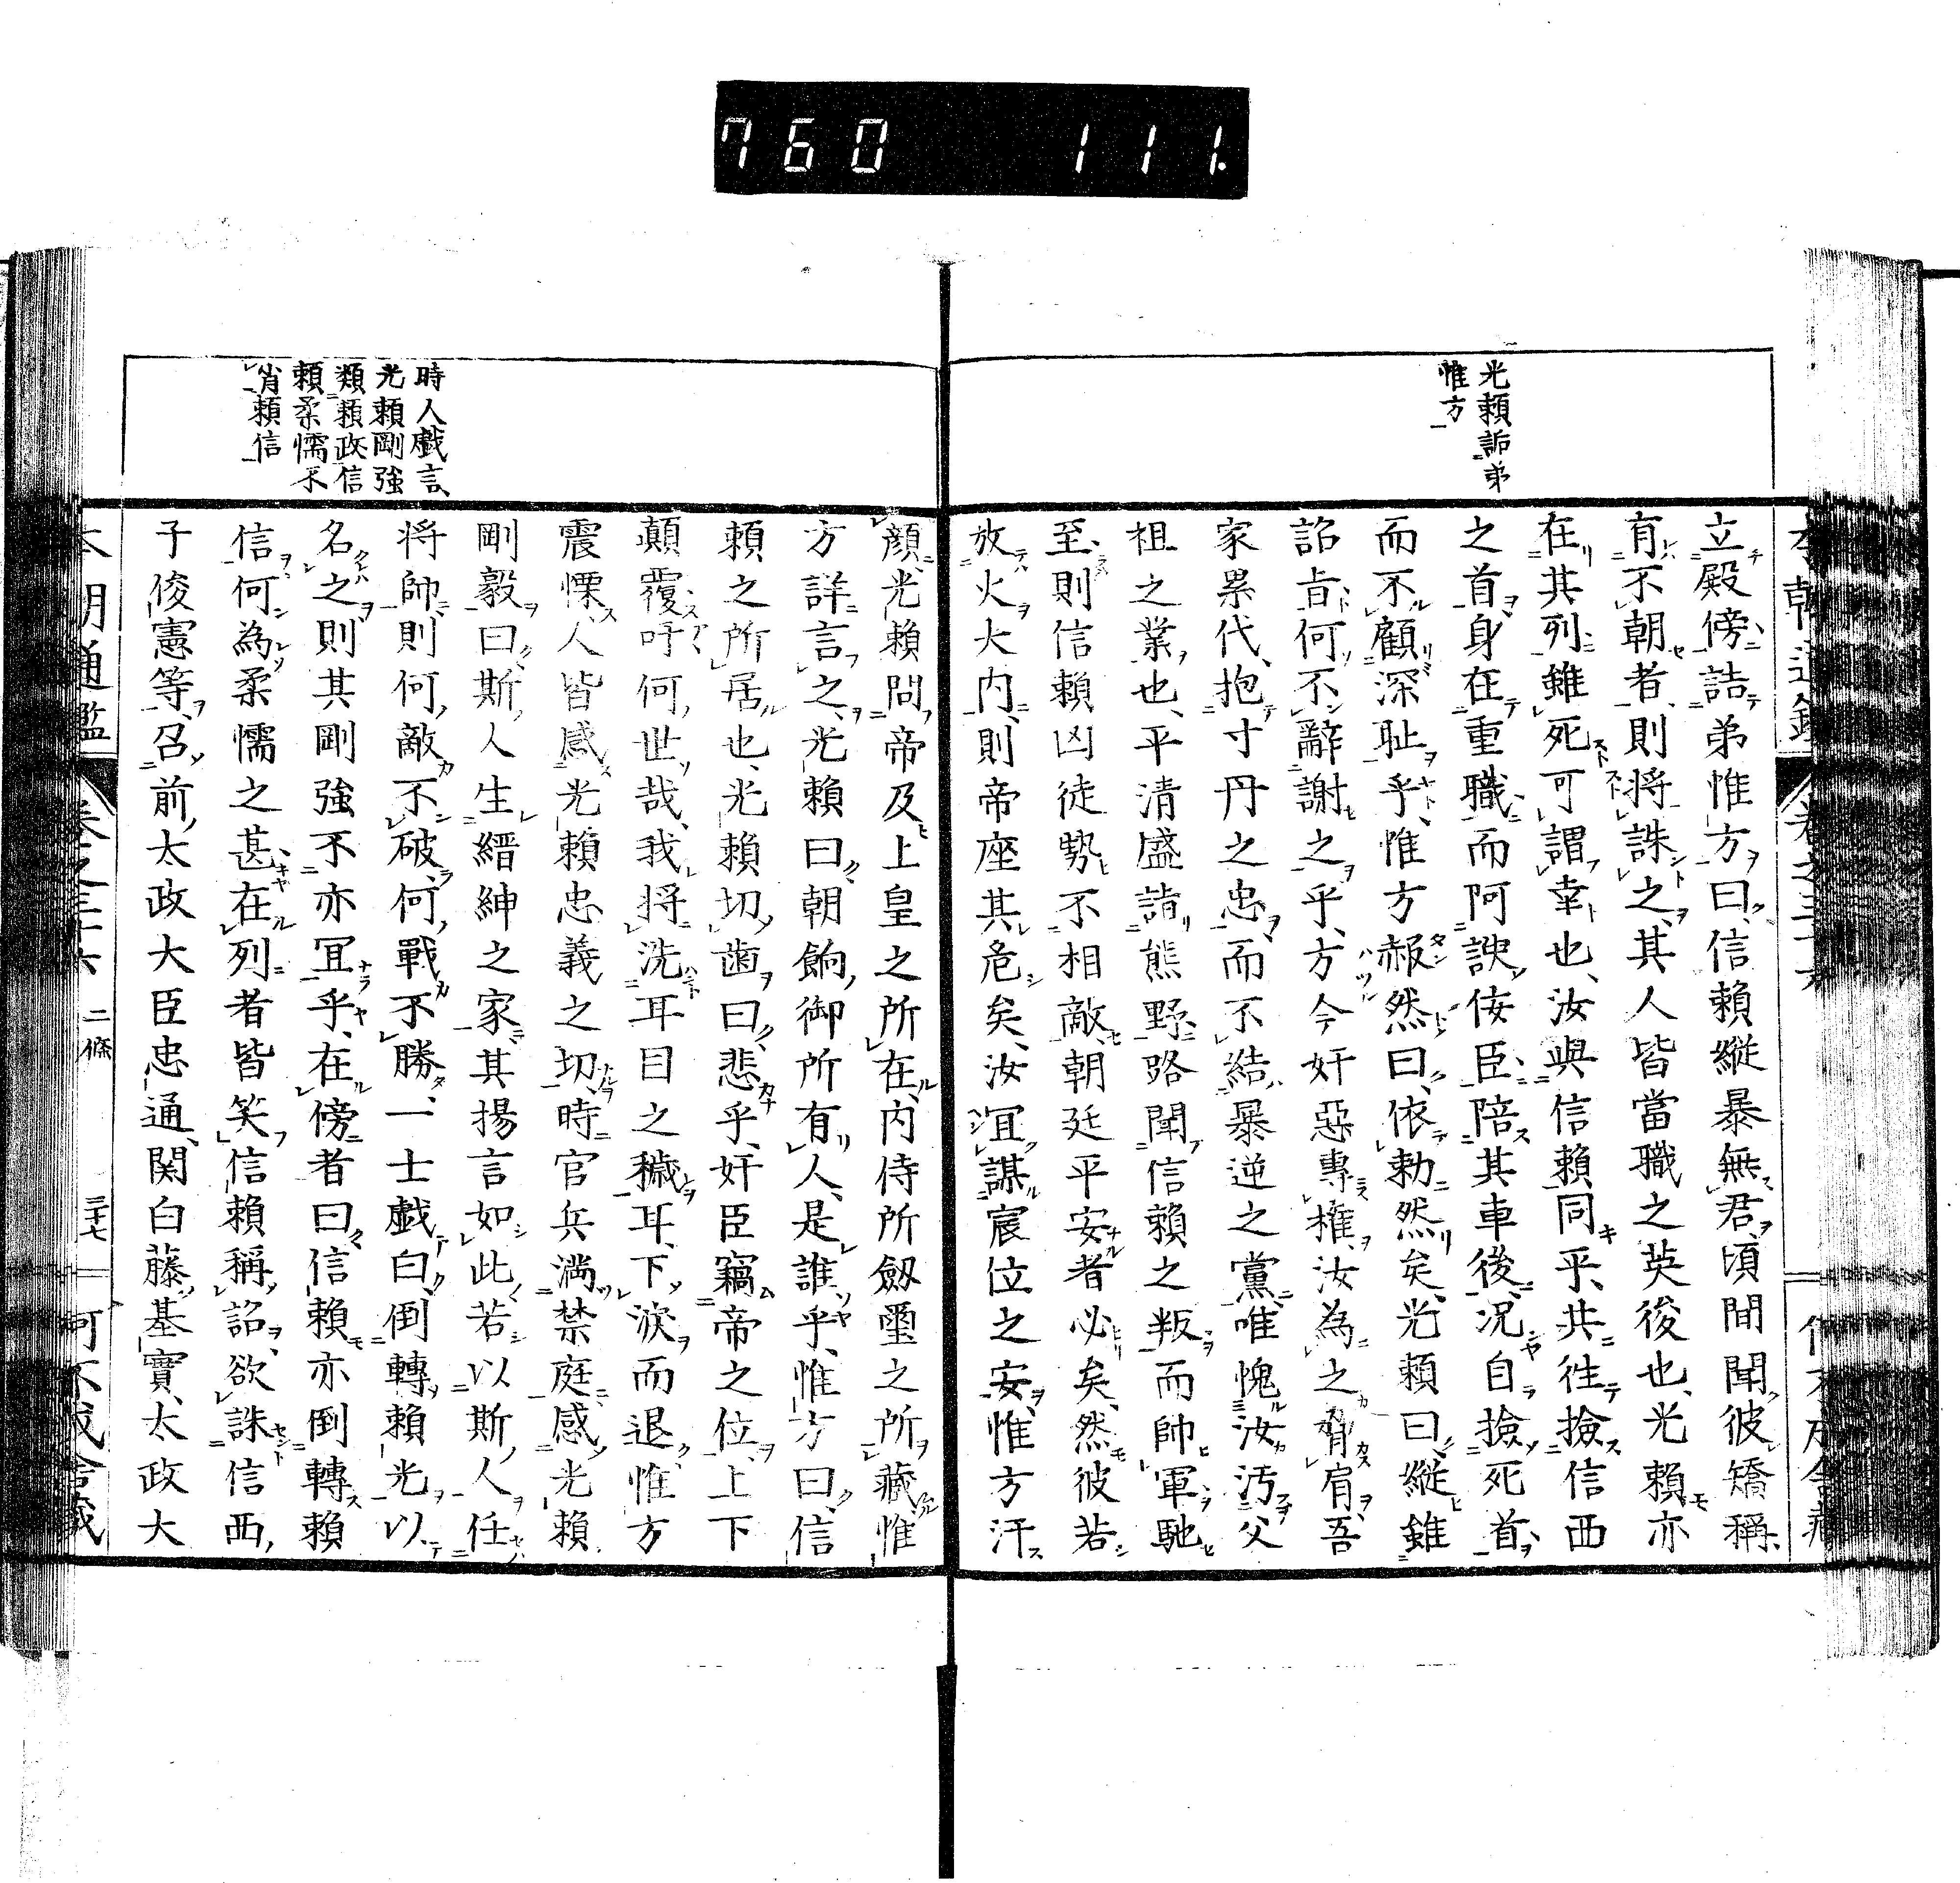 760 111.
光頼詬弟
惟方
立殿傍詰弟惟方曰、信頼縦暴無君、頃間聞彼矯稱
有不朝者、則将誅之、其人皆當職之英後也、光頼亦
在其列、雖死可謂幸也、汝與信頼同乎、共徃撿信西
之首、身在重職、而阿諛侫臣、陪其車後、況自撿死首、
而不顧深耻乎、惟方赧然曰、依勅然矣、光頼曰、縦雖
詔旨、何不辭謝之乎、方今奸惡專權、汝為之脅肩、吾
家累代、抱寸丹之忠、而不結暴逆之黨、唯愧汝汚父
祖之業也、平清盛詣熊野、路聞信頼之叛、而帥軍馳
至、則信頼凶徒勢不相敵、朝廷平安者必矣、然彼若
放火大内、則帝座其危矣、汝冝謀宸位之安、惟方汗
顔、光頼問帝及上皇之所在、内侍所劔璽之所藏、惟
方詳言之、光頼曰、朝餉御所有人、是誰乎、惟方曰、信
頼之所居也、光頼切歯曰、悲乎、奸臣竊帝之位、上下
顛覆、吁何世哉、我将洗耳目之穢耳、下淚而退、惟方
震慄、人皆感光頼忠義之切、時官兵満禁庭、感光頼
剛毅曰、斯人生縉紳之家、其揚言如此、若以斯人任
将帥、則何敵不破、何戰不勝、一士戯曰、倒轉頼光、以
名之、則其剛強不亦冝乎、在傍者曰、信頼亦倒轉頼
信、何為柔懦之甚、在列者皆笑、信頼稱詔、欲誅信西
子俊憲等、召前太政大臣忠通、関白藤基實、太政大
時人戯言、
光頼剛強
類頼政信
頼柔懦不
肖頼信
本朝通鑑 卷之三十六 二條 三十七